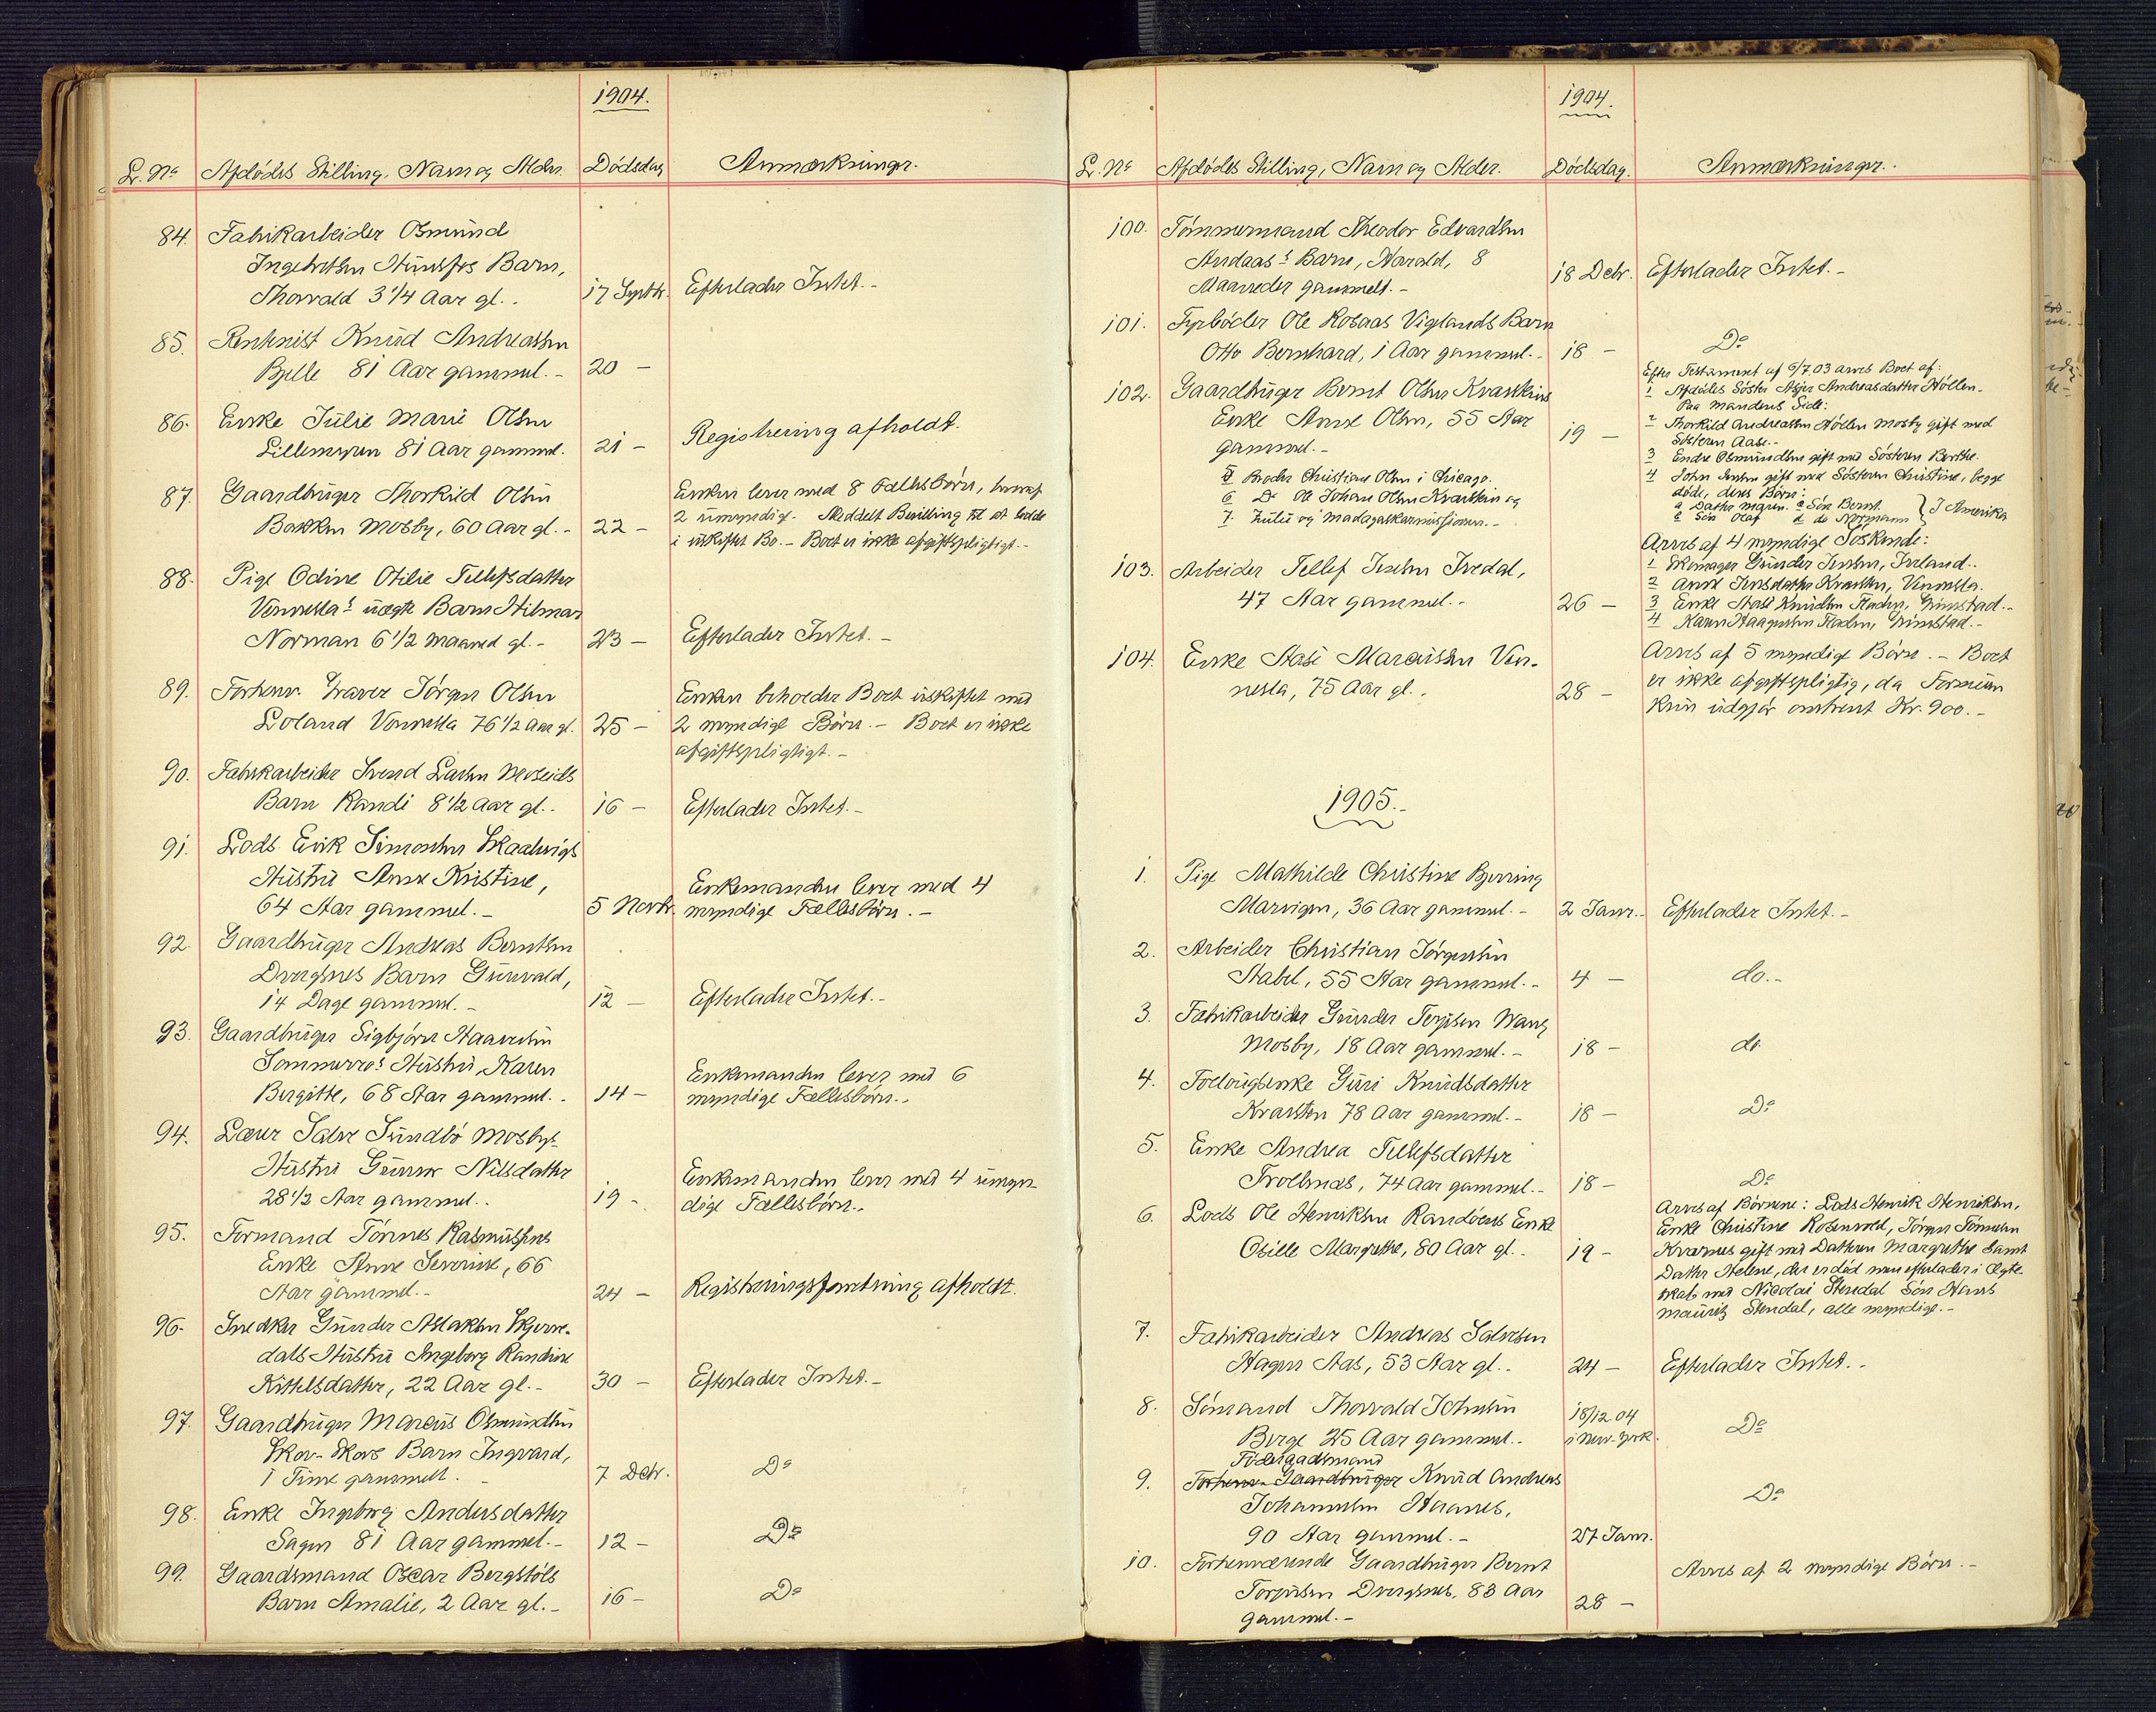 1904.
L. No Afdødes Stilling, Navn og Alder. Dødsdag Anmærkninger.
84. Fabrikarbeider Osmund
Ingebretsen Hunsfos Barn,
Thorvald 3 1/4 Aar gl.. 17 Septbr. Efterlader Intet.-
85. Rentenist Knud Andreassen
Bjelle 81 Aar gammel.- 20 -
86. Enke Julie Marie Olsen
Lillemyren 81 Aar gammel. 21 - Registrering afholdt.
87. Gaardbruger Thorkild Olsen
Enken lever med 8 Fællesbørn, hvoraf
Bakken Mosby, 60 Aar gl.- 22 - 2 umyndige. Meddelt Bevilling til at hensidde
i uskiftet Bo.- Boet er ikke afgiftspligtigt.-
88. Pige Odine Otilie Tellefsdatter
Vennesla's uægte Barn Hilmar
Norman 6 1/2 Maaned gl.- 23 - Efterlader Intet.-
89. Forhenv. Graver Jørgen Olsen
Enken beholder Boet uskiftet med
Loland Vennesla 76 1/2 Aar gl. 25 - 2 myndige Børn.- Boet er ikke
afgiftspligtigt.-
90. Fabrikarbeider Svend Larsen Moseids
Barn Randi 8 1/2 Aar gl.. 16 - Efterlader Intet.-
91. Lods Erik Simonsen Skaalevigs
Hustru Anne Kristine,
Enkemanden lever med 4
64 Aar gammel.- 5 Novbr. myndige Fællesbørn.-
92. Gaardbruger Andreas Berntsen
Dvergsnes Barn Gunvald,
14 Dage gammel.- 12 - Efterlader Intet.-
93. Gaardbruger Sigbjørn Haavorsen
Sommerro's Hustru, Karen
Enkemanden lever med 6
Bergitte, 68 Aar gammel.. 14 - myndige Fællesbørn..
94. Lærer Salve Sundbø Mosbys
Hustru Gunvor Nilsdatter
Enkemanden lever med 4 umyn-
28 1/2 Aar gammel.. 19 -. dige Fællesbørn..
95. Formand Tønnes Rasmussens
Enke Anne Severine, 66
Aar gammel.- 24 - Registreringsforretning afholdt.
96. Snedker Gunder Aslaksen Skjerve-
dals Hustru Ingeborg Randine
Kittelsdatter, 22 Aar gl.- 30 - Efterlader Intet.-
97. Gaardbruger Marcus Osmundsen
Skov-Skovs Barn Ingvard,
1 Time gammelt.- 7 Debr. Do
98. Enke Ingeborg Andersdatter
Sagen 81 Aar gammel.- 12 - Do
99. Gaardsmand Oscar Bergstøls
Barn Amalie, 2 Aar gl.- 16 - Do
1904.
L. No Afdødes Stilling, Navn og Alder. Dødsdag. Anmærkninger.
100. Tømmermand Theodor Edvardsen
Andaas's Barn, Harald, 8
Maaneder gammelt.- 18 Debr. Efterlader Intet.-
101. Fyrbøder Ole Rosaas Viglands Barn
Otto Bernhard, 1 Aar gammel.- 18 - Do
102. Gaardbruger Bernt Olsen Kvarsteins
Enke Anne Olsen, 55 Aar
gammel.- 19 -
Efter Testament af 6/7 03 arves Boet af:
1 Afdødes Søster Asjer Andreasdatter Høllen.-
Paa Mandens Side:
2 Thorkild Andreassen Høllen Mosby gift med
Søsteren Aase.-
3 Endre Osmundsen gift med Søsteren Berthe.
4 John Jensen gift med Søsteren Christine, begge
døde, deres Børn:
a Datter Maren. c Søn Bernt.
e Søn Olaf d do Normann } I Amerika
5 Broder Christian Olsen i Chicago.
6 Do Ole Johan Olsen Kvarstein og
7. Zulu og Madagaskarmissionen.-
103. Arbeider Tellef Jensen Ivedal,
47 Aar gammel.- 26 -
Arves af 4 myndige Søskende:
1 Skomager Gunder Jensen, Iveland..
2 Anne Jensdatter Kvarsten, Vennesla.
3 Enke Aase Knudsen Fladen, Grimstad.-
4 Karen Haagensen Fladen, Grimstad.-
104. Enke Aase Marcussen Ven-
nesla, 75 Aar gl.. 28 -
Arves af 5 myndige Børn.- Boet
er ikke afgiftspligtig, da Formuen
kun udgjør omtrent Kr. 900.-
1905.-
1. Pige Mathilde Christine Bjerring
Marvigen, 36 Aar gammel.- 2 Janr.- Efterlader Intet.-
2. Arbeider Christian Jørgensen
Stabel, 55 Aar gammel.- 4 - do.-
3. Fabrikarbeider Gunder Terjesen Wang
Mosby, 18 Aar gammel.- 18 - do.
4. Foelougsenke Guri Knudsdatter
Kvarsten 78 Aar gammel.- 18 - Do
5. Enke Andrea Tellefsdatter
Trollenas, 74 Aar gammel.- 18 - Do
6. Lods Ole Henriksen Randøens Enke
Osille Margrethe, 80 Aar gl.. 19 -
Arves af Børnene: Lods Henrik Henriksen,
Enke Christine Rosenvold, Jørgen Tønnesen
Kvarnes gift med Datteren Margrethe samt
Datter Helene, der er død men efterlader i Ægte-
skab med Nicolai Stendal Søn Hans
Mauritz Stendal, alle myndige.-
7. Fabrikarbeider Andreas Salvesen
Hagen Aas, 53 Aar gl.. 24 - Efterlader Intet.-
8. Sømand Thorvald Johnsen 18/12 04
Berge 25 Aar gammel.. i New-York. Do
Føderaadsmand
9. Forhenv. Gaardbruger Knud Andreas
Johannesen Haanes, Do
90 Aar gammel.- 27 Janr.
10. Forhenværende Gaardbruger Bernt
Arves af 2 myndige Børn.-
Torjusen Dvergsnes, 83 Aar
gammel.- 28 -